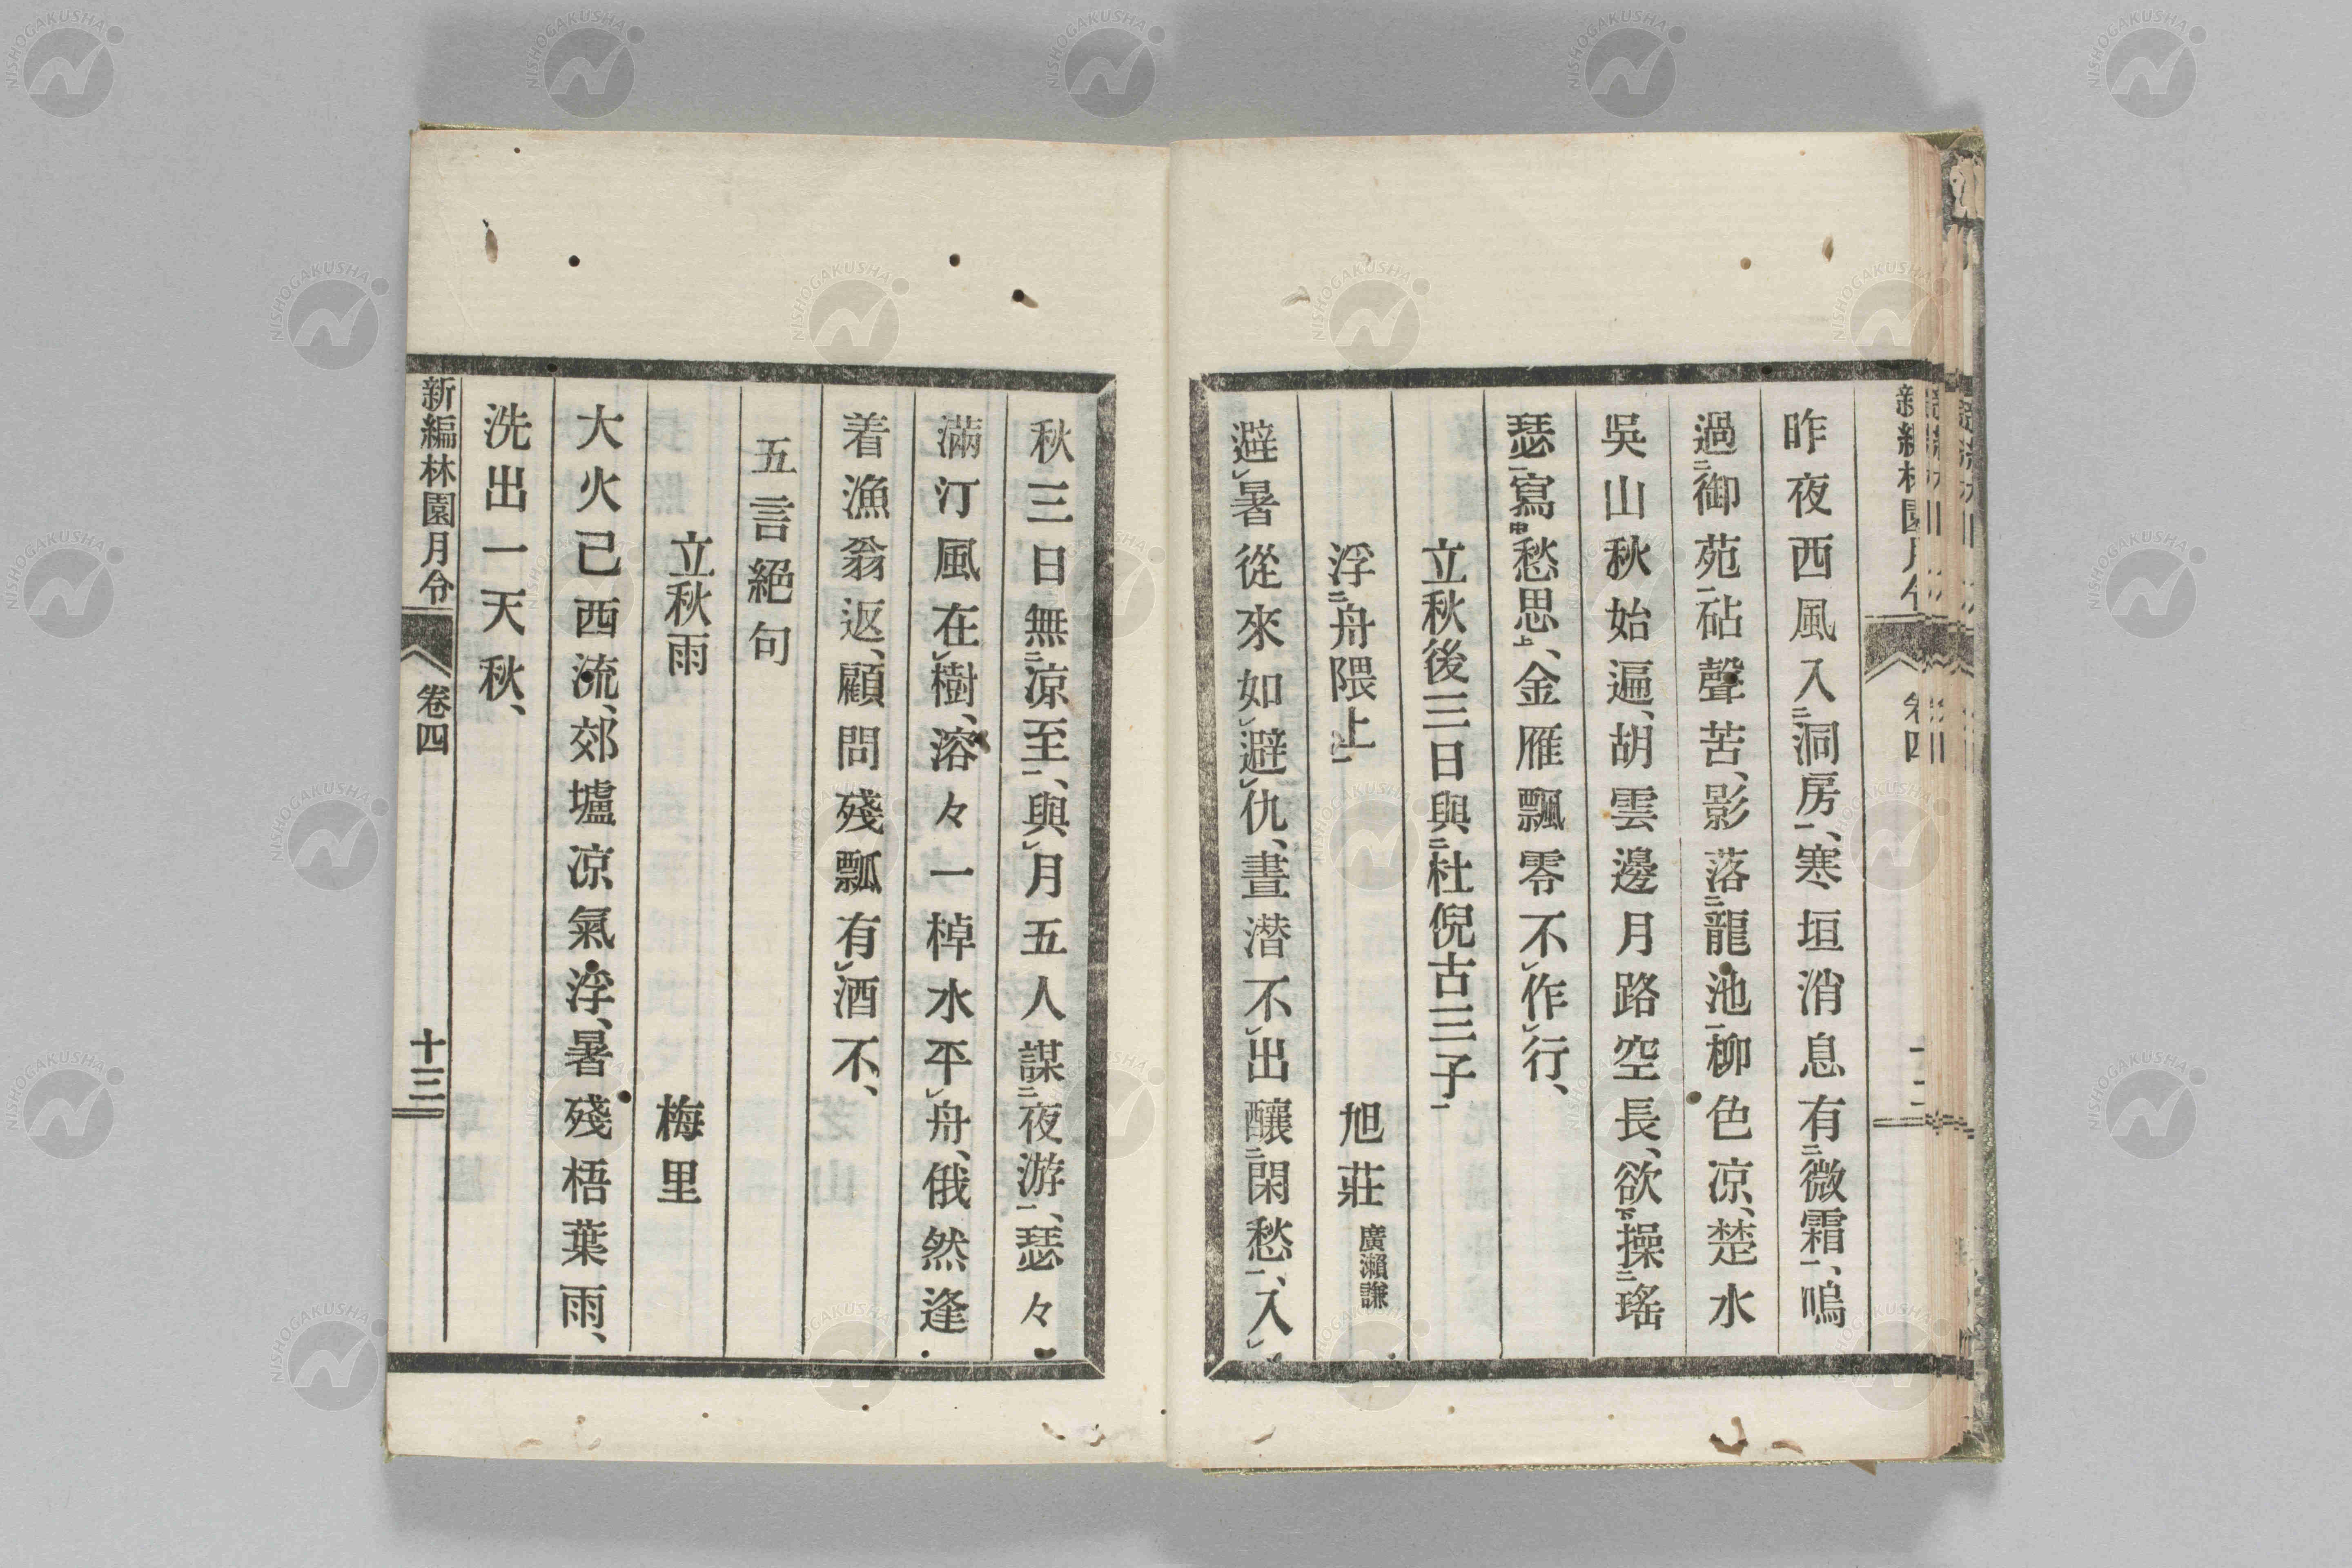 昨夜西風入㆓洞房㆒、寒垣消息有㆓微霜㆒、嗚
過㆓御苑㆒砧聲苦、影落㆓龍池㆒柳色凉、楚水
吳山秋始遍、胡雲邊月路空長、欲㆘操㆓瑤
瑟㆒寫㆗愁思㆖、金雁飄零不㆑作㆑行、
立秋後三日與㆓杜倪古三子㆒
浮㆓舟隈上㆒　旭莊　廣瀨謙
避㆑暑從來如㆑避㆑仇、晝潜不㆑出釀㆓閑愁㆒、入㆑
新編林園月令　卷四　十三
秋三日無㆓凉至㆒、與㆑月五人謀㆓夜游㆒、瑟々
滿汀風在㆑樹、溶々一棹水平㆑舟、俄然逢
着漁翁返、顧問殘瓢有㆑酒不、
五言絕句
立秋雨　梅里
大火已西流、郊墟凉氣浮、暑殘梧葉雨、
洗出一天秋、
NISHOGAKUSHA